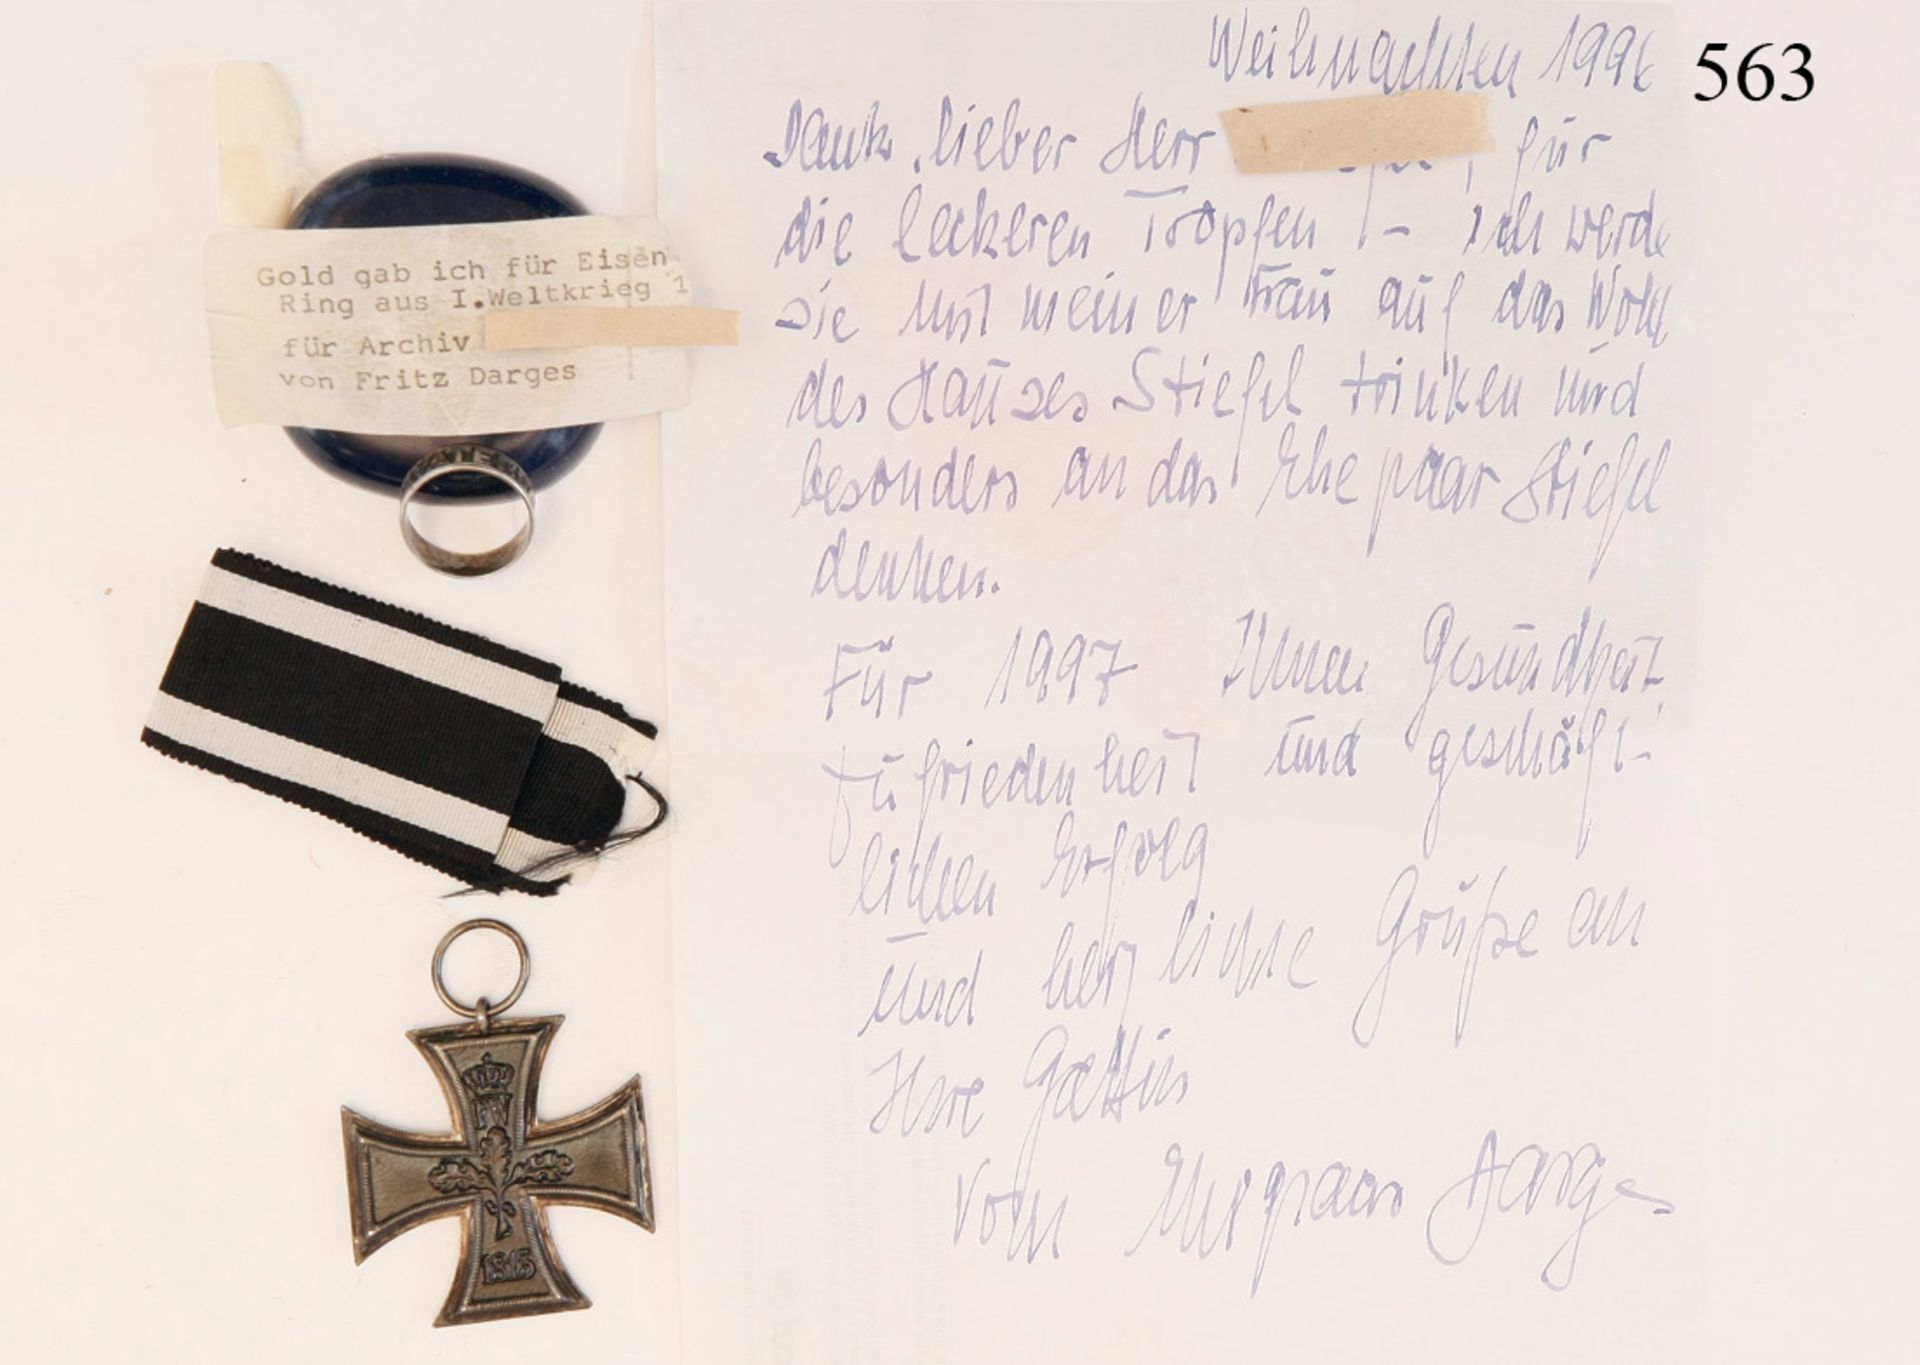 563
Weihnachten 1996
Dank, lieber Herr , für
die leckeren Tropfen! – ich werde
sie mit meiner Frau auf das Wohl
des Hauses Stiefel trinken und
besonders an das Ehepaar Stiefel
denken.
Für 1997 Ihnen Gesundheit,
Zufriedenheit und geschäft-
lichen Erfolg
und herzliche Grüße an
Ihre Gattin
vom Ehepaar Darges
Gold gab ich für Eisen
Ring aus I.Weltkrieg 1
für Archiv
von Fritz Darges
FW
1813